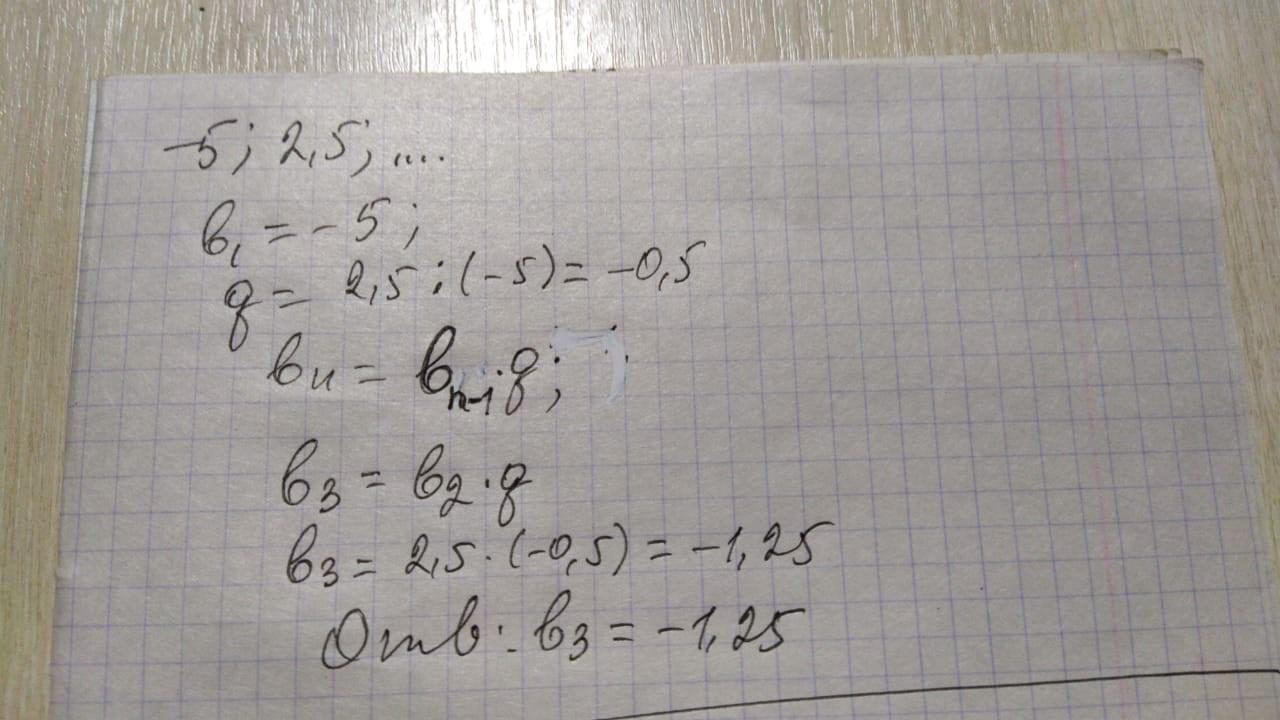 -5; 2,5; ....
b₁ = -5;
q = 2,5 : (-5) = -0,5
bₙ = bₙ₋₁·q;
b₃ = b₂·q
b₃ = 2,5·(-0,5) = -1,25
Отв: b₃ = -1,25